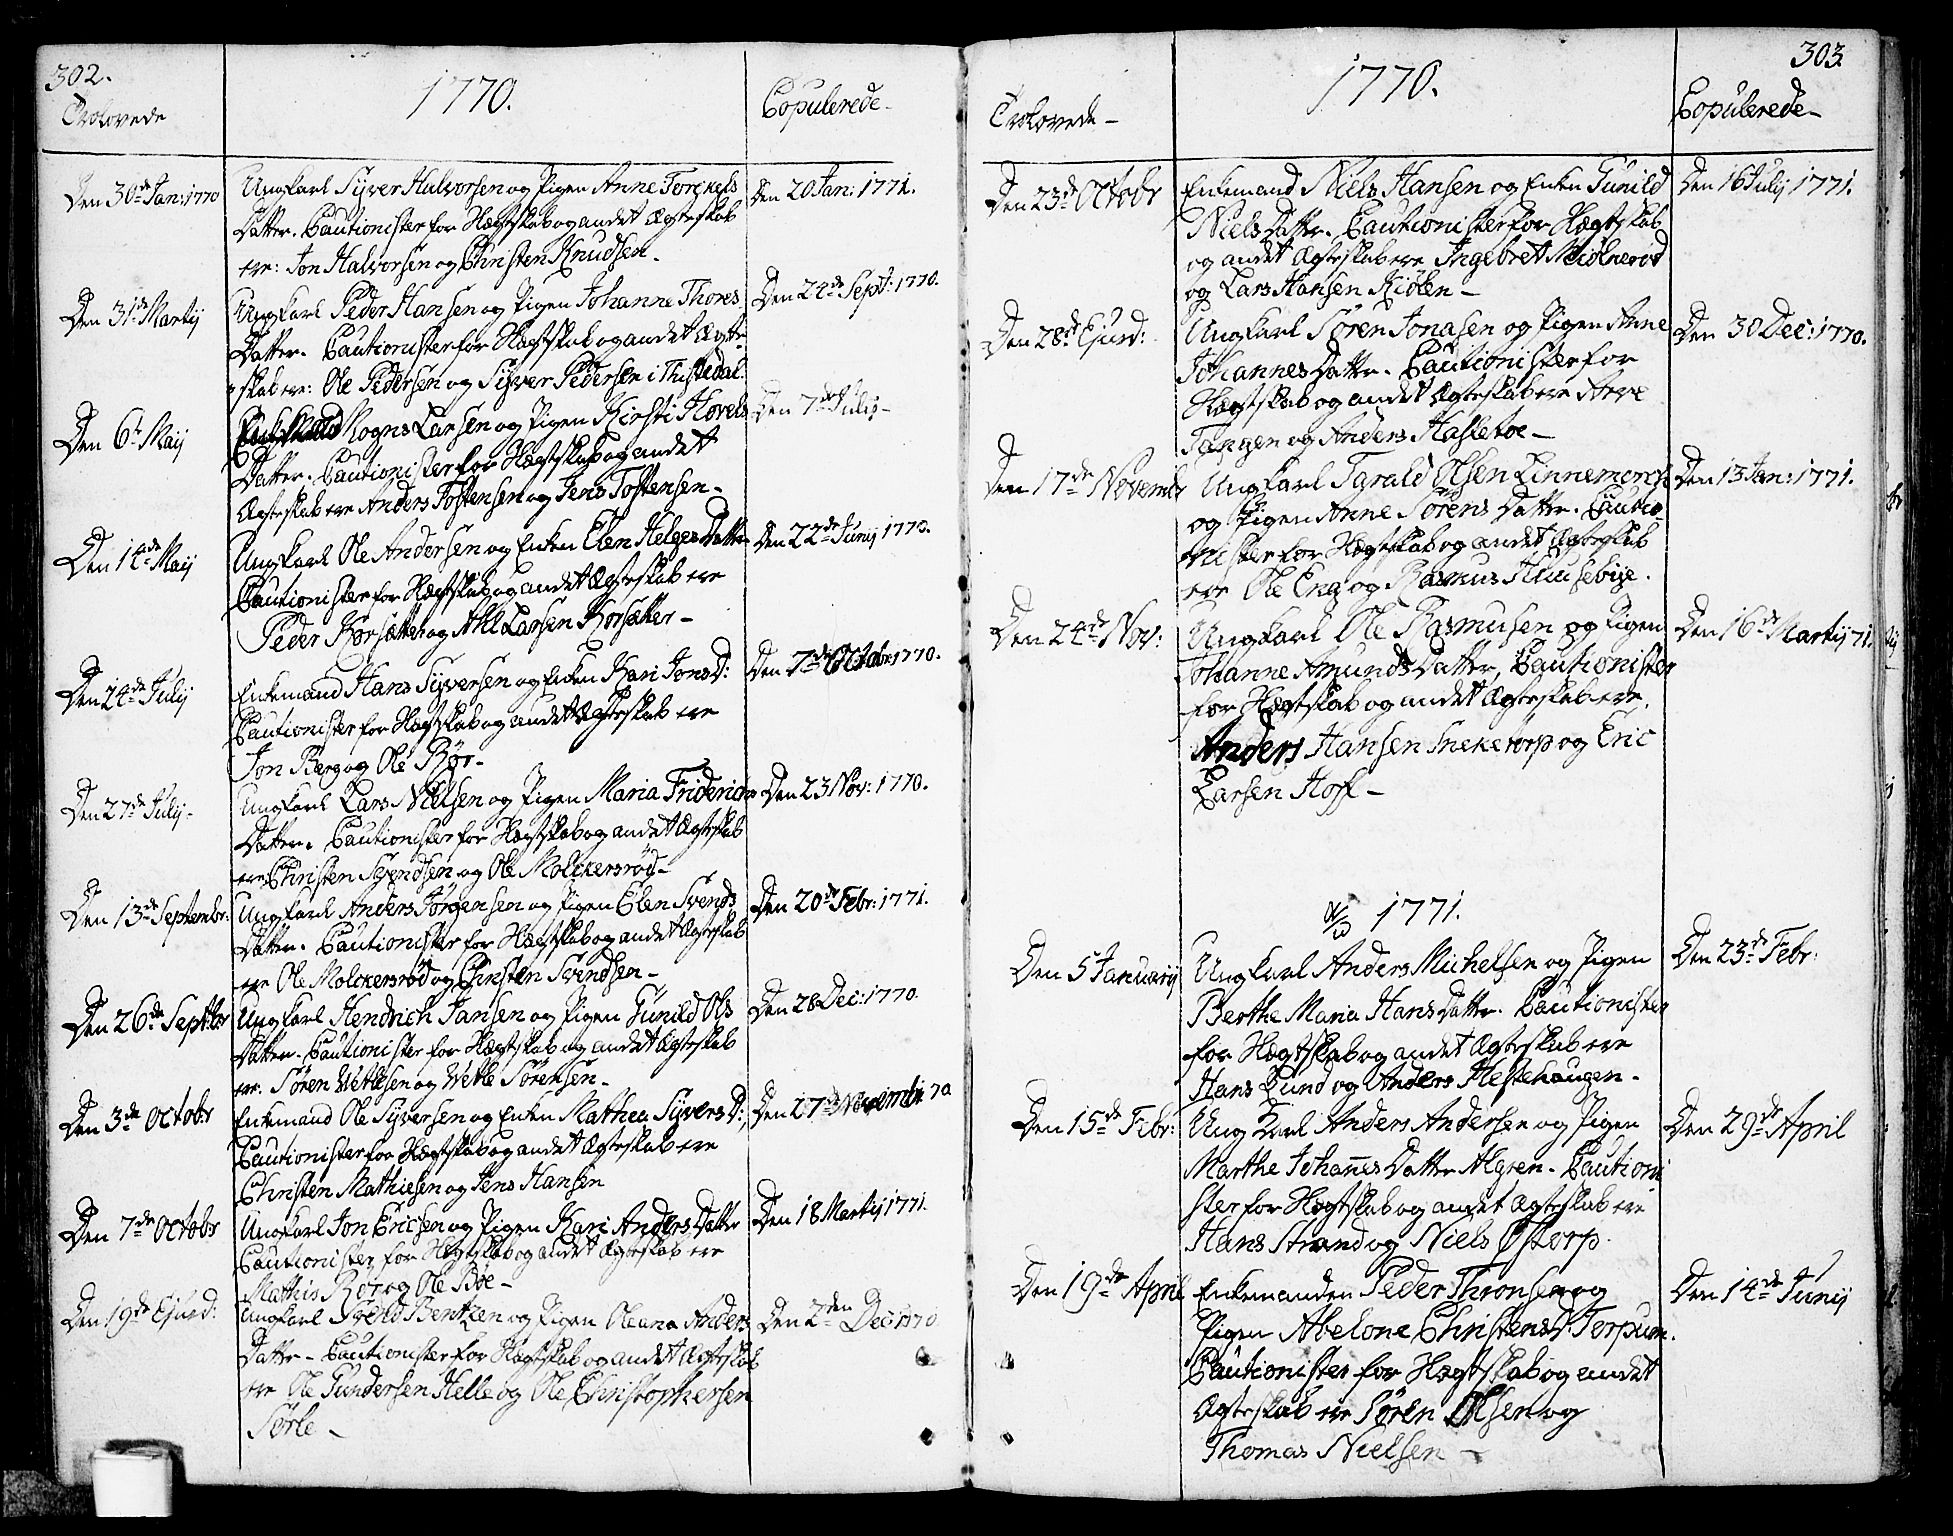 302.
1770.
Trolovede
Copulerede
Den 30de Jan: 1770
Ungkarl Syver Halvorsen og Pigen Anne Torckels
Datter. Cautionister for Hægtskab og andet Ægteskab
ere: Jon Halvorsen og Christen Knudsen
Den 20 Jan: 1771.
Den 31de Martij
Ungkarl Peder Hansen og Pigen Johanne Thores
Datter. Cautionister for Hægtskab og andet Ægte-
skab ere: Ole Pedersen og Syver Pedersen i Thistedal
Den 24de Sept: 1770.
Den 6te Maij
Mogns Larsen og Pigen Kirsti Hovels
Datter. Cautionister for Hægtskab og andet
Ægteskab ere Anders Tostensen og Jens Tostensen
Den 7de Julij
Den 14de Maij
Ungkarl Ole Andersen og Enken Elen Helges Datter
Cautionister for Hægtskab og andet Ægteskab ere
Peder Korsætter og Larsen Korsætter
Den 22de Junij 1770.
Den 24de Julij
Enkemand Hans Syversen og Enken Kari Jons D:
Cautionister for Hægtskab og andet Ægteskab ere
Jon Berg og Ole Bør
Den 7de Octobr 1770.
Den 27de Julij
Ungkarl Lars Nielsen og Pigen Maria Friderichs
Datter. Cautionister for Hægtskab og andet Ægteskab
ere Christen Svendsen og Ole Molckersrød
Den 23 Nov: 1770.
Den 13de Septembr:
Ungkarl Anders Jörgensen og Pigen Elen Svends
Datter. Cautionister for Hægtskab og andet Ægteskab
ere Ole Molckersrød og Christen Svendsen
Den 20de Febr: 1771.
Den 26de Septbr
Ungkarl Hendrich Jansen og Pigen Gunild Ols
Datter. Cautionister for Hægtskab og andet Ægteskab
ere: Sören Wetlesen og Wetle Sörensen
Den 28 Dec: 1770
Den 3de Octobr
Enkemand Ole Syversen og Enken Mathea Syvers D:,
Cautionister for Hægtskab og andet Ægteskab ere
Christen Mathiesen og Jens Hansen
Den 27de Novembr: 70
Den 7de Octobr
Ungkarl Jon Ericsen og Pigen Kari Anders Datter
Cautionister for Hægtskab og andet Ægteskab ere
Mathis Bør og Ole Bøe
Den 18 Martij 1771.
Den 19de Ejusd:
Ungkarl Svend Bentzen og Pigen Oleana Anders
Datter Cautionister for Hægtskab og andet Ægteskab
ere Ole Gundersen Helle og Ole Christophersen
Sörle
Den 2den Dec: 1770
303.
1770.
Trolovede
Copulerede
Den 23de Octobr
Enkemand Niels Hansen og Enken Gunild
Niels Datter. Cautionister for Hægtskab
og andet Ægteskab ere Ingebret Miölnerød
og Lars Hansen Kiölen
Den 16 Julij 1771.
Den 28de Ejusd:
Ungkarl Sören Jonasen og Pigen Anne
Johannes Datter. Cautionister for
Hægtskab og andet Ægteskab ere Arve
Tangen og Anders Hasletoe
Den 30 Dec: 1770.
Den 17de Novembr
Ungkarl Olsen Linnemarch
og Pigen Anne Sörens Datter. Cautio-
nister for Hægtskab og andet Ægteskab
ere Ole Eng og Rasmus Huusebye.
Den 13 Jan: 1771.
Den 24de Nov:
Ungkarl Ole Rasmusen og Pigen
Johanne Amunds Datter, Cautionister
for Hægtskab og andet Ægteskab ere.
Anders Hansen Sneketorp og Eric
Larsen Hoff
Den 16de Martij 71.
1771.
Den 5 Januarij
Ungkarl Anders Michelsen og Pigen
Berthe Maria Hans Datter. Cautionister
for Hægtskab og andet Ægteskab ere
Hans Lund og Anders Hestehaugen.
Den 23de Febr:
Den 15de Febr:
Ung Karl Anders Andersen og Pigen
Marthe Johannes Datter Algren. Cautioni
ster for Hægtskab og andet Ægteskab ere
Hans Strand og Niels Østorp.
Den 29de April
Den 19de April
Enkemanden Peder Thronsen og
Pigen Abelone Christens D: Torpum.
Cautionister for Hægtskab og andet
Ægteskab ere Sören Olsen og
Thomas Nielsen
Den 14de Junij